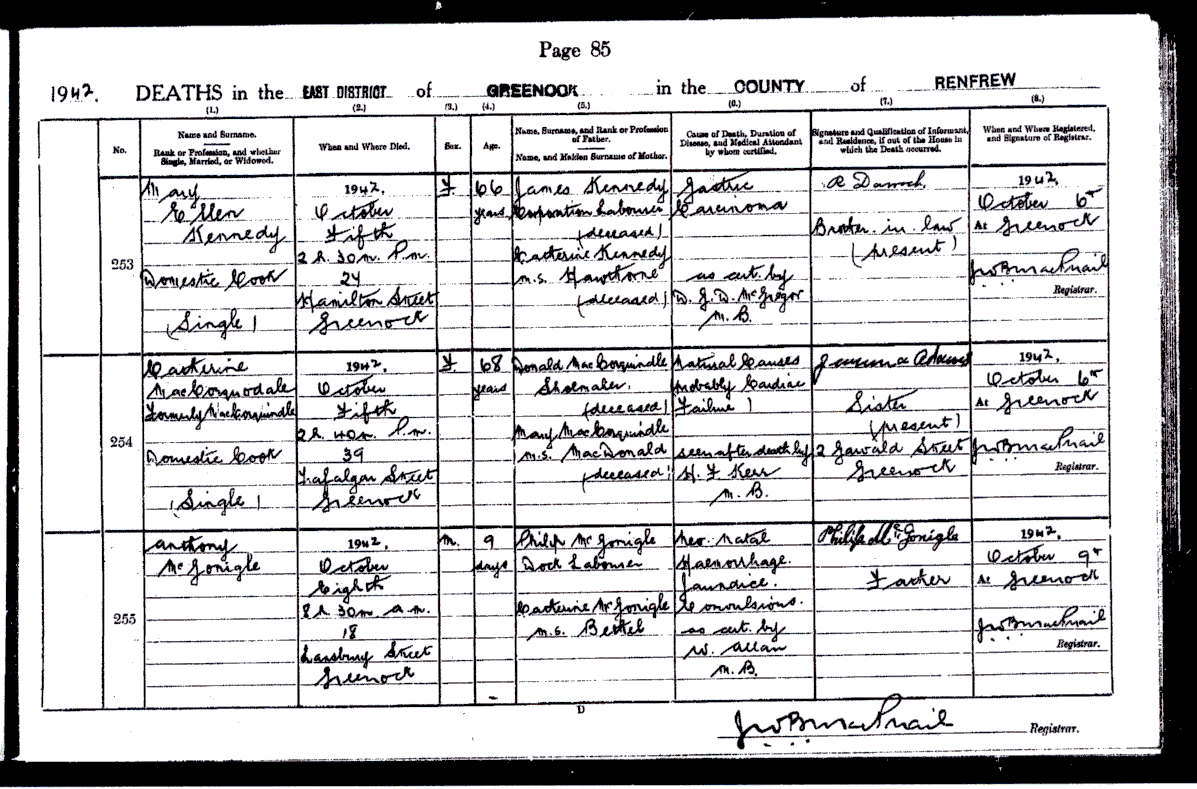 Page 85
1942. DEATHS in the EAST DISTRICT of GREENOCK in the COUNTY of RENFREW
(1.) (2.) (3.) (4.) (5.) (6.) (7.) (8.)
No.
Name and Surname.
Rank or Profession, and whether
Single, Married, or Widowed.
When and Where Died.
Sex.
Age.
Name, Surname, and Rank or Profession
of Father.
Name, and Maiden Surname of Mother.
Cause of Death, Duration of
Disease, and Medical Attendant
by whom certified.
Signature and Qualification of Informant,
and Residence, if out of the House in
which the Death occurred.
When and Where Registered,
and Signature of Registrar.
253
Mary
Ellen
Kennedy
Domestic Cook
(Single)
1942,
October
Fifth
2 h. 30 m. P.m.
24
Hamilton Street
Greenock
F
66
years
James Kennedy
Corporation Labourer
(deceased)
Catherine Kennedy
m.s. Hawthorne
(deceased)
Gastric
Carcinoma
as cert. by
D. J. D. McGregor
M.B.
R Darroch
Brother-in-law
(present)
1942,
October 6th
At Greenock
Jno B MacPhail
Registrar.
254
Catherine
MacCorquodale
Formerly MacCorquindle
Domestic Cook
(Single)
1942,
October
Fifth
2 h. 40 m. P.m.
39
Trafalgar Street
Greenock
F
68
years
Donald MacCorquindle
Shoemaker.
(deceased)
Mary MacCorquindle
m.s. MacDonald
(deceased)
Natural Causes
Probably Cardiac
Failure)
seen after death by
H. F. Kerr
M.B.
Jemima Adams
Sister
(present)
2 Street
Greenock
1942,
October 6th
At Greenock
Jno B MacPhail
Registrar.
255
Anthony
McGonigle
1942,
October
Eighth
8 h. 30 m. a.m.
18
Lansbury Street
Greenock
M.
9
days
Philip McGonigle
Dock Labourer
Catherine McGonigle
m.s. Bethel
Neo-Natal
Haemorrhage.
Jaundice.
Convulsions.
as cert. by
W. Allan
M.B.
Philip McGonigle
Father
1942,
October 9th
At Greenock
Jno B MacPhail
Registrar.
D
Jno B MacPhail
Registrar.